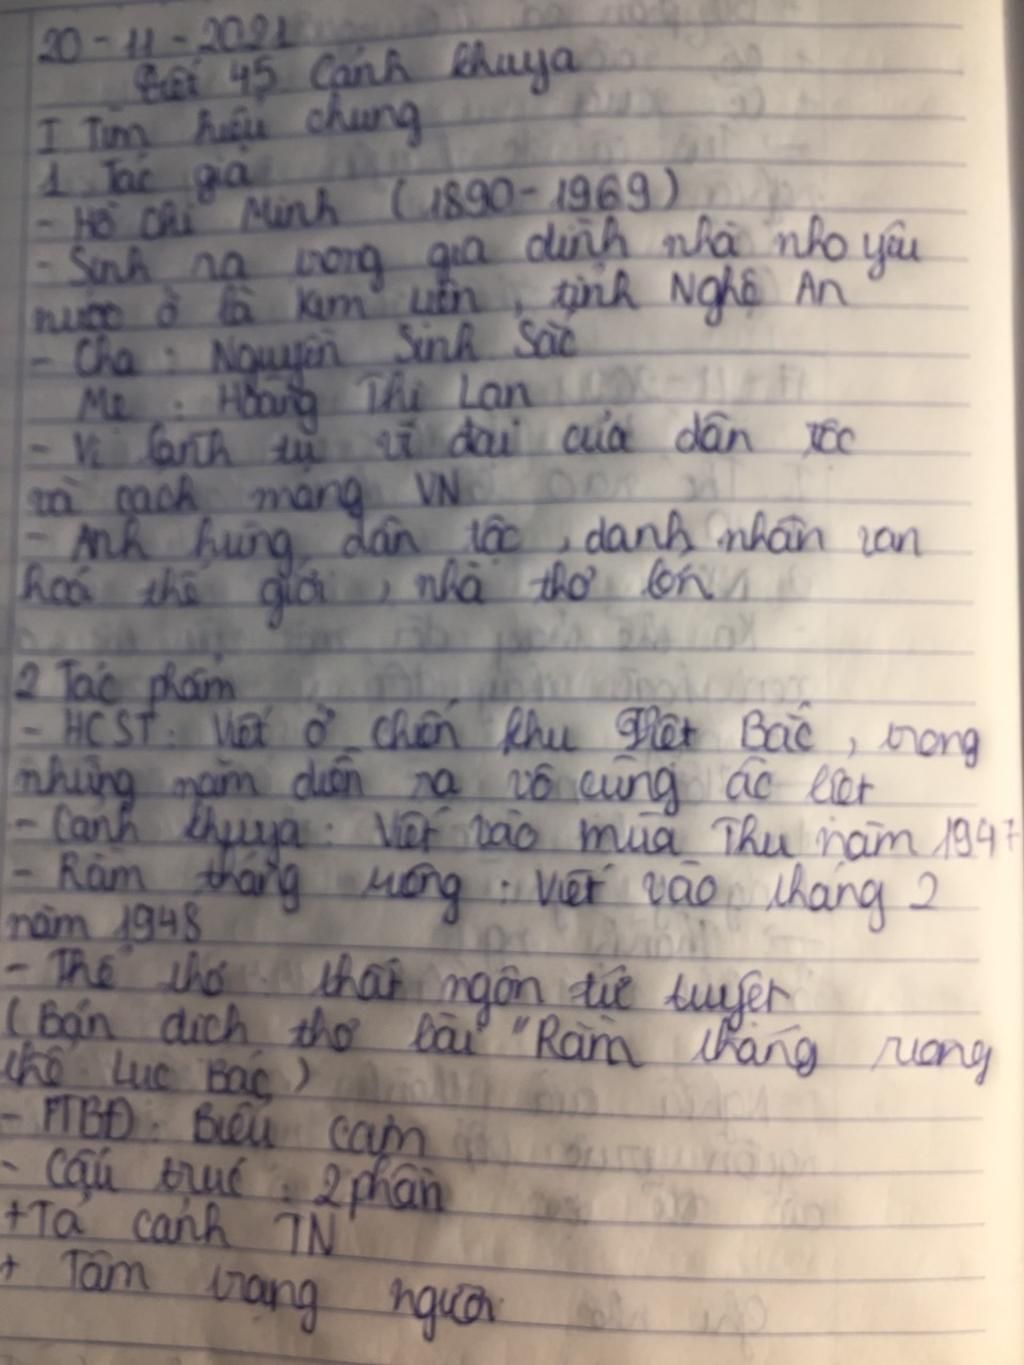 20-11-2021
Tiết 45 Cảnh khuya
I Tìm hiểu chung
1 Tác giả
- Hồ Chí Minh (1890-1969)
- Sinh ra trong gia đình nhà nho yêu
nước ở là Kim Liên, tỉnh Nghệ An
- Cha: Nguyễn Sinh Sắc
Mẹ: Hoàng Thị Lan
- Vị lãnh tụ vĩ đại của dân tộc
và cách mạng VN
- Anh hùng dân tộc, danh nhân văn
hoá thế giới, nhà thơ lớn
2 Tác phẩm
- HCST: Viết ở chiến khu Việt Bắc, trong
những năm diễn ra vô cùng ác liệt
- Cảnh khuya: Viết vào mùa Thu năm 1947
- Rằm tháng riêng: Viết vào tháng 2
năm 1948
- Thể thơ: thất ngôn tứ tuyệt
(Bản dịch thơ bài "Rằm tháng riêng
thể Lục Bác)
- PTBĐ: Biểu cảm
- Cấu trúc: 2 phần
+ Tả cảnh TN
+ Tâm trạng người